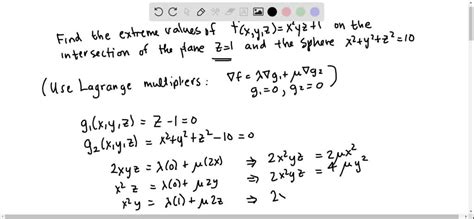 Find the extreme values of f(x,y,z)=x²yz+1 on the
intersection of the plane z=1 and the sphere x²+y²+z²=10
(Use Lagrange multipliers: ∇f = λ∇g₁ + μ∇g₂
g₁=0, g₂=0)
g₁(x,y,z) = z-1=0
g₂(x,y,z) = x²+y²+z²-10=0
2xyz = λ(0) + μ(2x) ⇒ 2x²yz = 2μx²
x²z = λ(0) + μ2y ⇒ 2x²yz = 4μy²
x²y = λ(1) + μ2z ⇒ 2